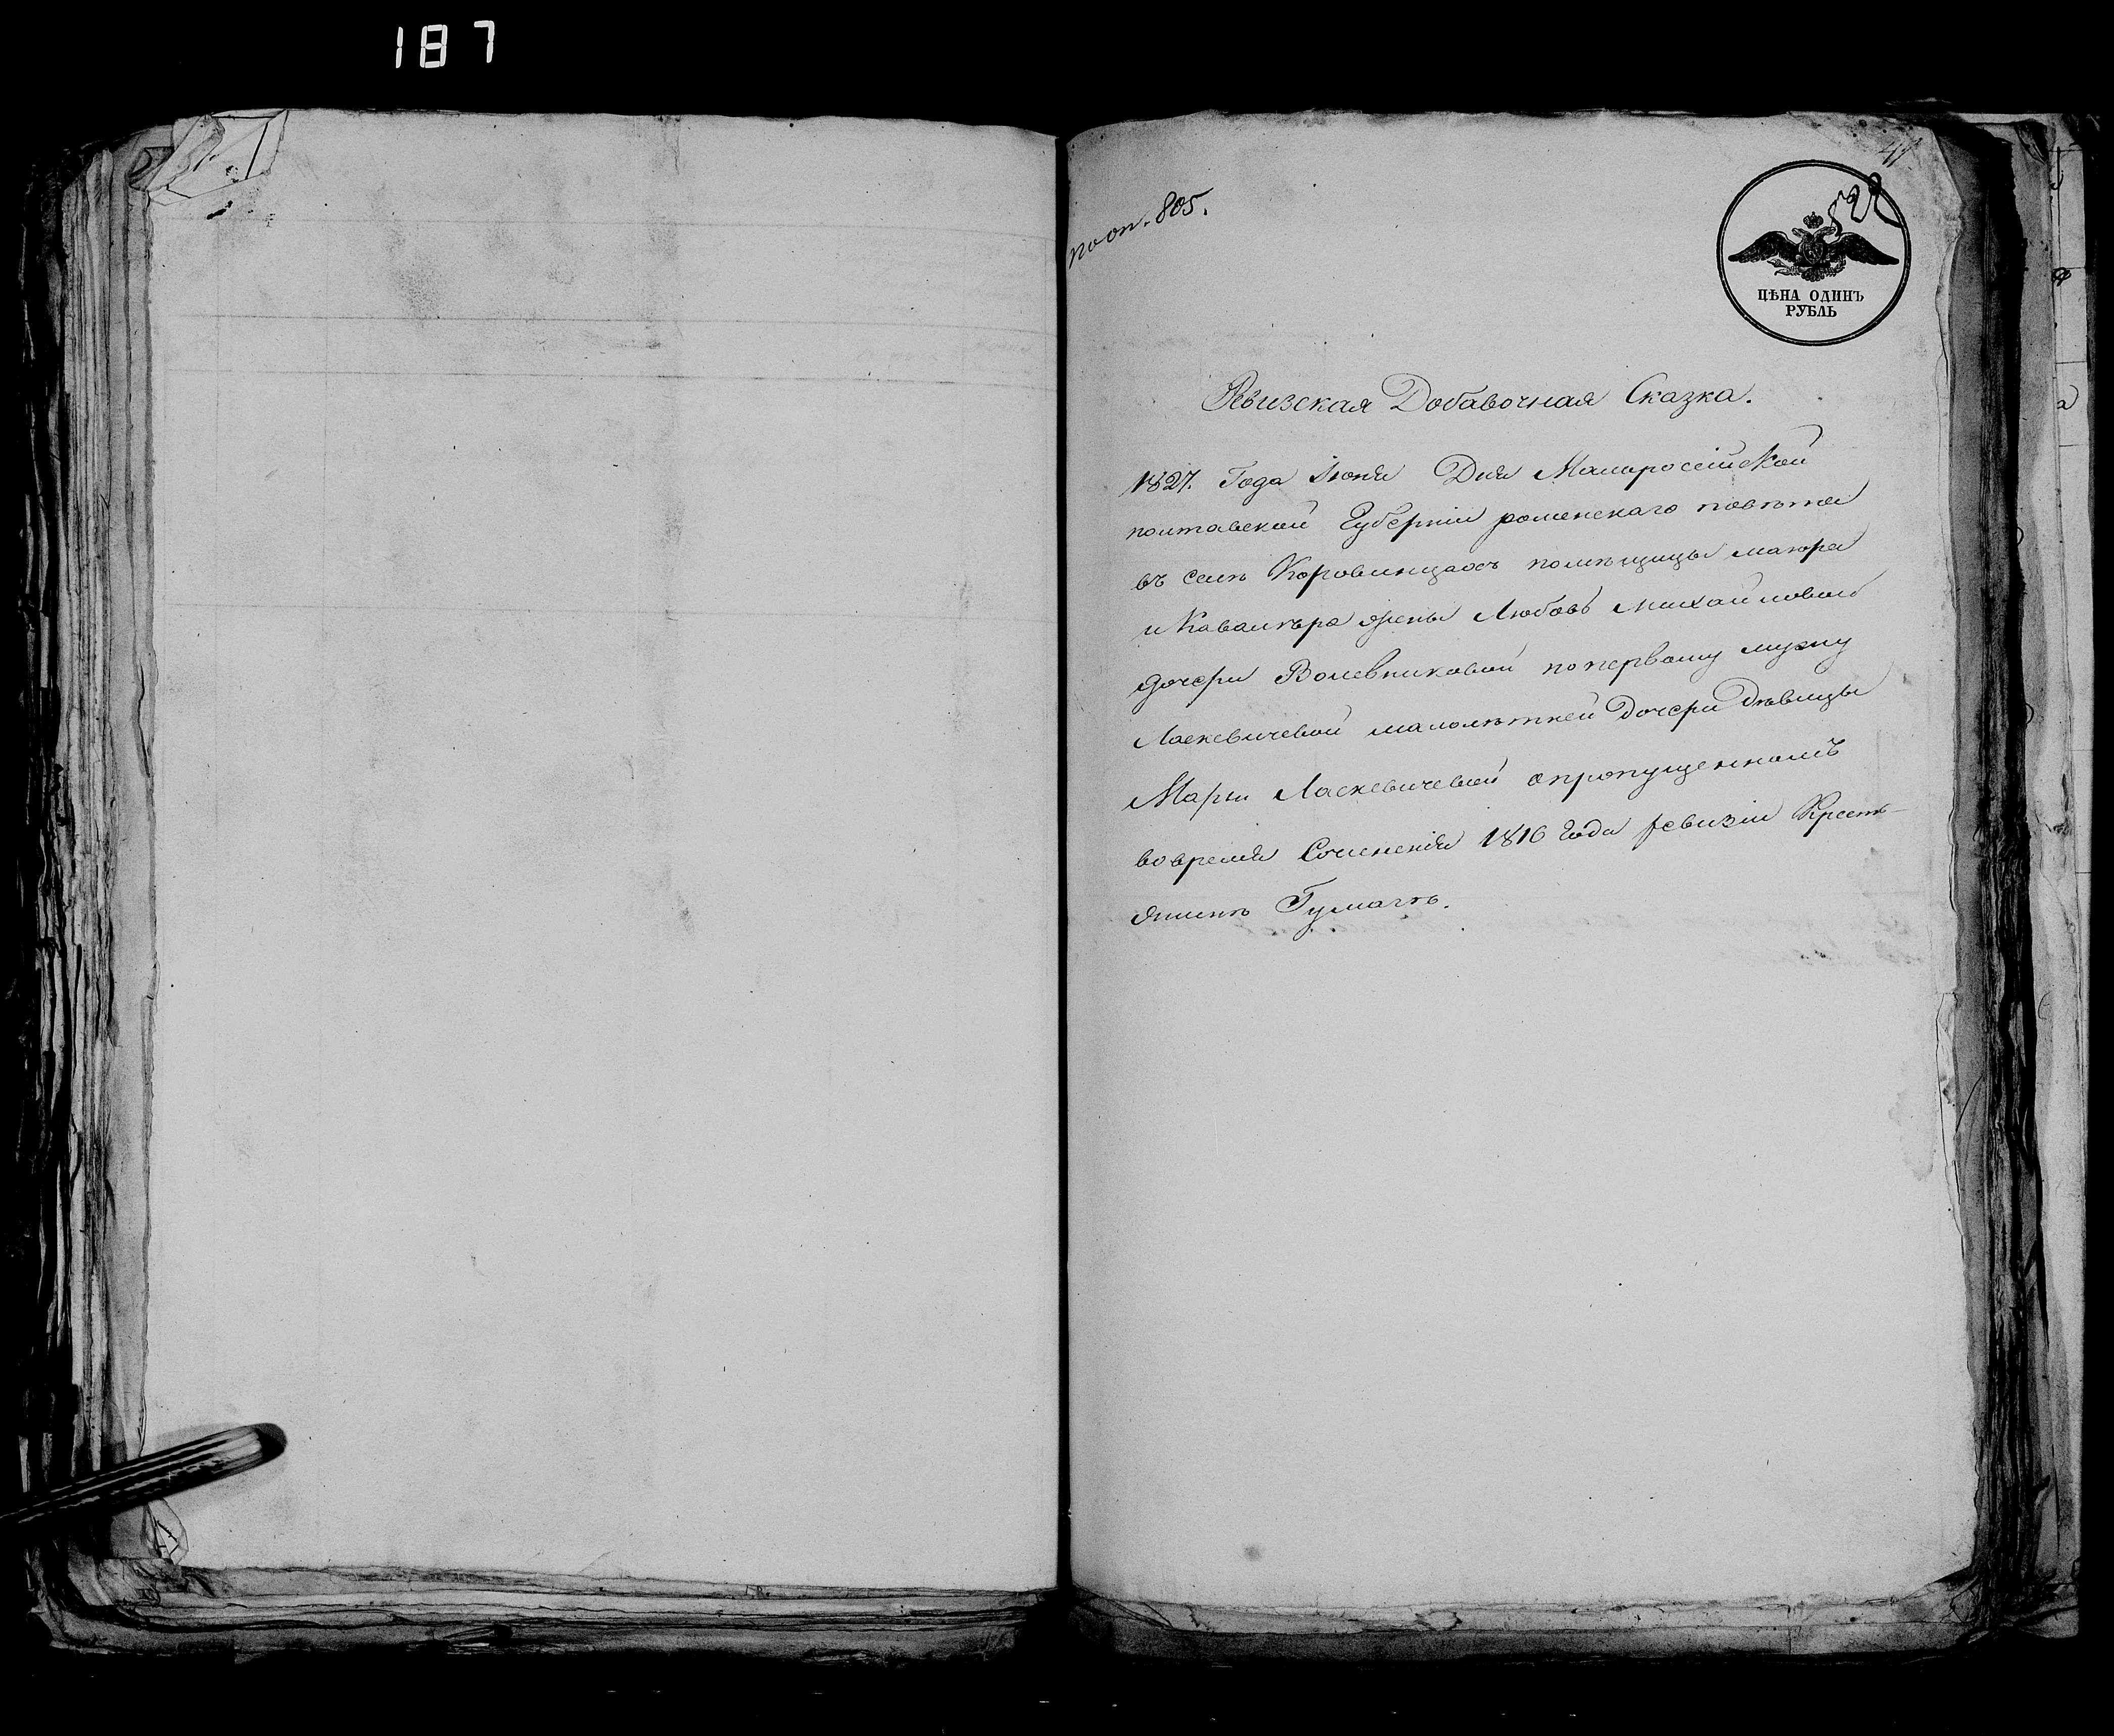 187
по оп. 805.
47
522
ЦѢНА ОДИНЪ
РУБЛЬ
Ревизская Добавочная Сказка.
1827. Года Июня Дня Малоросійской
полтавской Губерніи роменскаго повѣта
въ селѣ Коровинцахъ помѣщицы маіора
и Кавалѣра жены Любовѣ михайловой
дочери Волевниковой по первому мужу
Ласкевичевой малолѣтней Дочери Дѣвицы
Марьи Ласкевичевой опропущенномъ
во время Сочиненія 1816 Года ревизіи Крестъ-
янинѣ